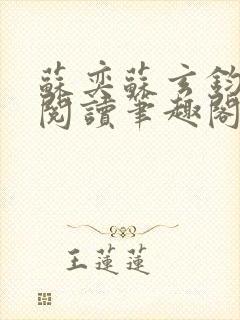 蘇奕蘇玄鈞
閱讀筆趣閣
王蓮蓮